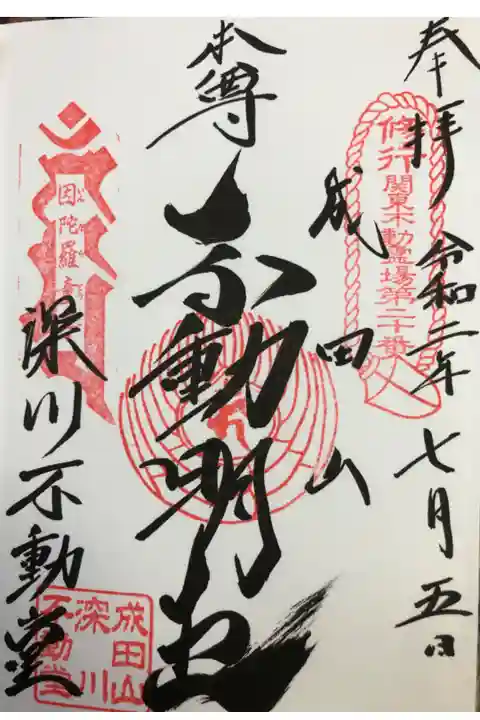 奉拝 令和二年 七月五日
修行 関東不動霊場第二十番
成田山
本尊 不動明王
深川不動堂
因陀羅
成田山
深川
不動堂